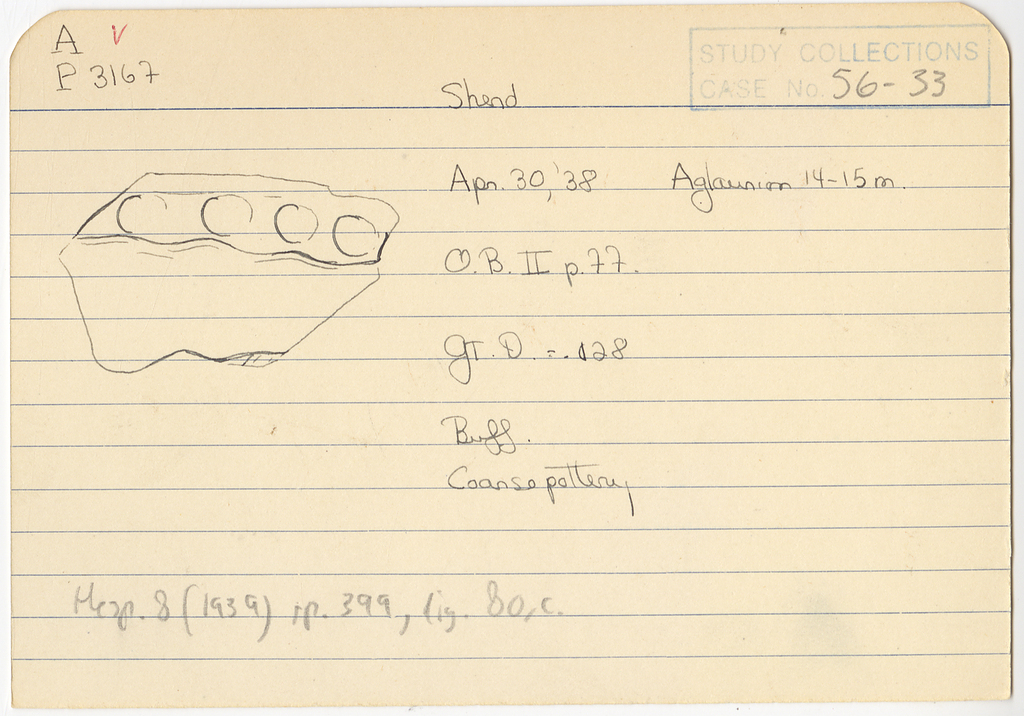 A V
P 3167
STUDY COLLECTIONS
CASE No. 56-33
Sherd
Apr. 30, '38 Aglaurion 14-15 m.
O.B. II p. 77.
GT. D. = .128
Buff.
Coarse pottery
Hesp. 8 (1939) p. 399, fig. 80, c.